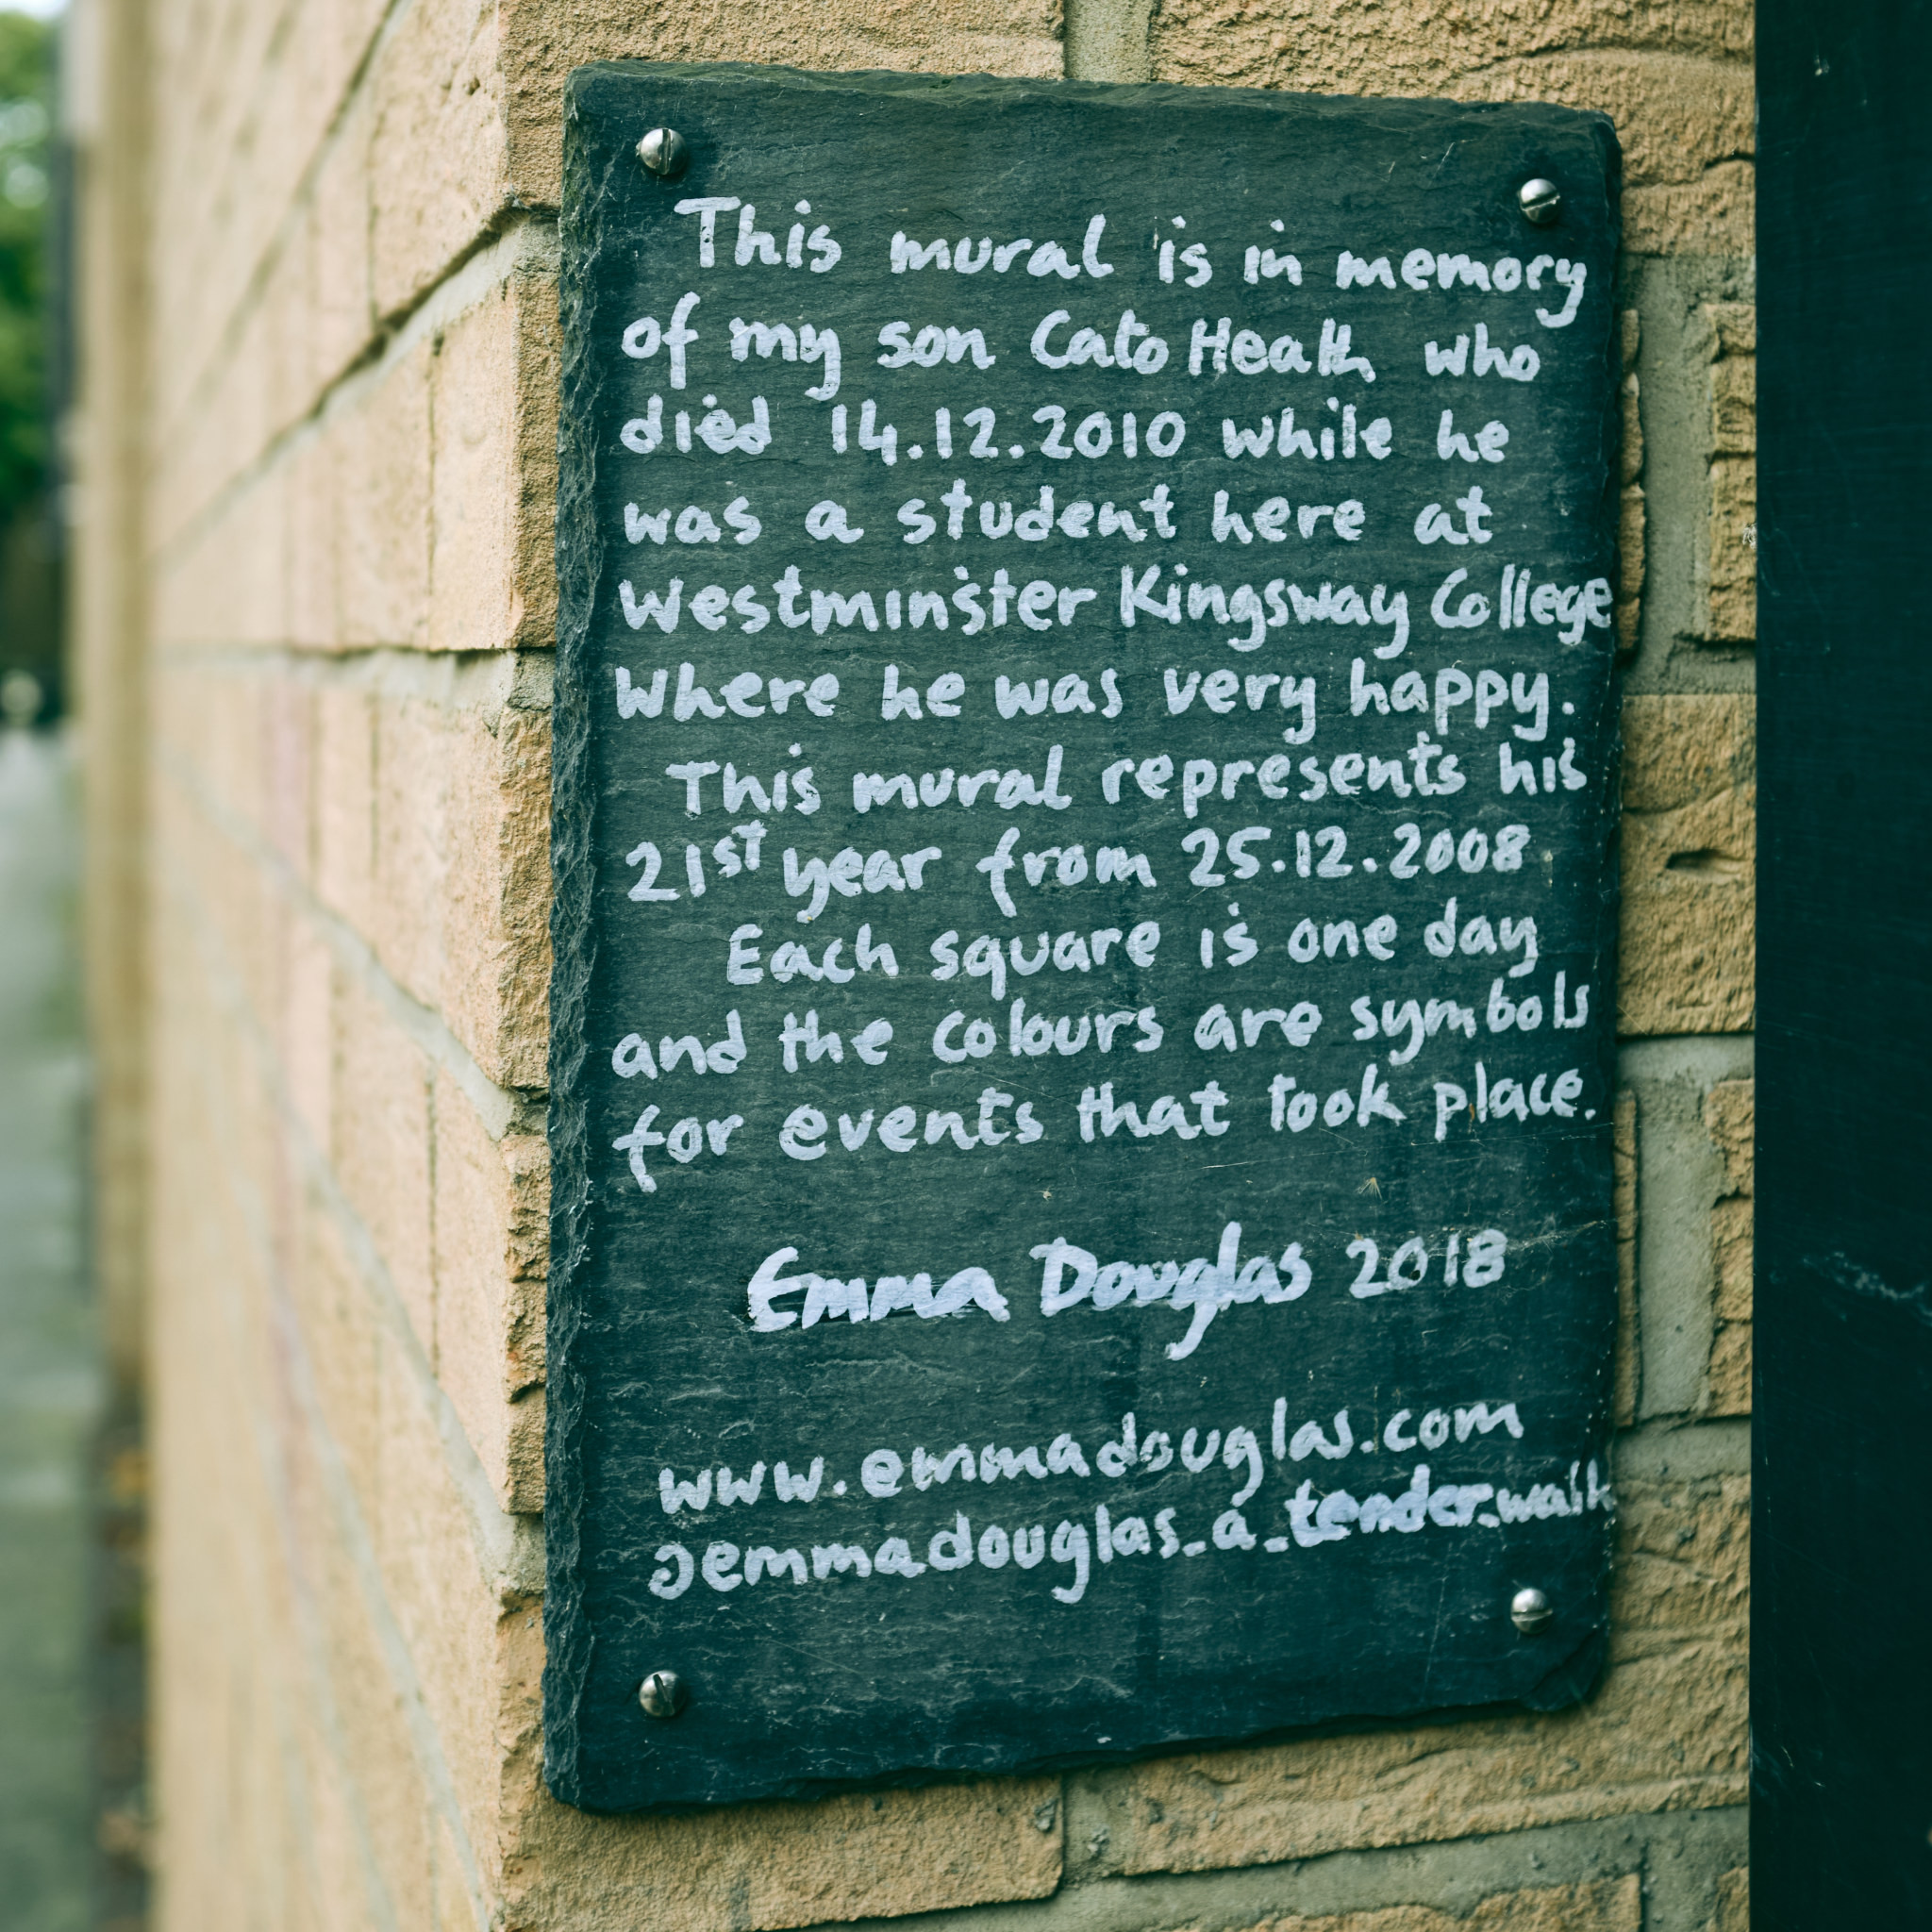 This mural is in memory
of my son Cato Heath who
died 14.12.2010 while he
was a student here at
Westminster Kingsway College
where he was very happy.
This mural represents his
21st year from 25.12.2008
Each square is one day
and the colours are symbols
for events that took place.
Emma Douglas 2018
www.emmadouglas.com
@emmadouglas_a_tender_walk